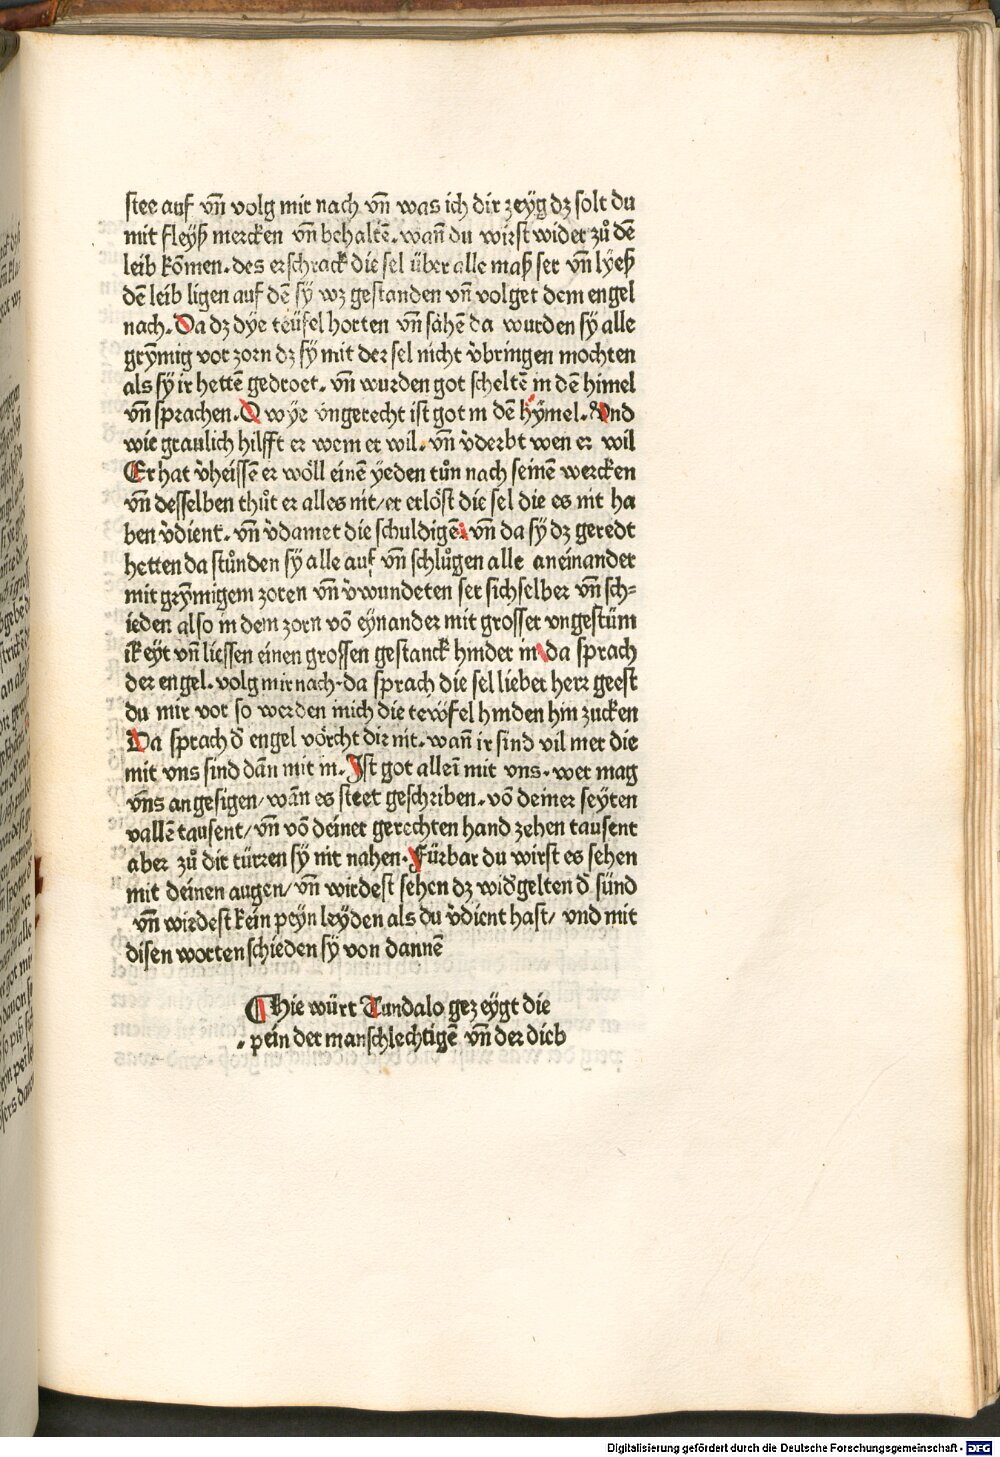 stee auf vn̄ volg mir nach vn̄ was ich dir zeyg dz solt du
mit fleyß mercken vn̄ behaltē. wan̄ du wirst wider zů dē
leib kōmen. des erschrack die sel über alle maß ser vn̄ lyeß
dē leib ligen auf dē sÿ wz gestanden vn̄ volget dem engel
nach. Da dz dÿe teüfel horten vn̄ sahē da wurden sÿ alle
grȳmig vor zorn dz sÿ mit der sel nicht v̓bringen mochten
als sÿ ir hettē gedroet. vn̄ wurden got scheltē in dē himel
vn̄ sprachen. O wÿe vngerecht ist got in dē hÿmel. Vnd
wie graulich hilfft er wem er wil. vn̄ v̓derbt wen er wil
Er hat v̓heissē er wöll einē yeden tůn nach seinē wercken
vn̄ desselben thůt er alles nit/ er erlöst die sel die es nit ha
ben v̓dient. vn̄ v̓damet die schuldigē. vn̄ da sÿ dz geredt
hetten da stůnden sÿ alle auf vn̄ schlůgen alle aneinander
mit grȳmigem zoren vn̄ v̓wundeten ser sichselber vn̄ sch=
ieden also in dem zorn vō eynander mit grosser vngestüm
ikeyt vn̄ liessen einen grossen gestanck hinder in. da sprach
der engel. volg mir nach. da sprach die sel lieber herr geest
du mir vor so werden mich die tewfel hinden hin zucken
Da sprach d̓ engel vörcht dir nit. wan̄ ir sind vil mer die
mit vns sind dan̄ mit in. Ist got alleī mit vns. wer mag
vns angesigen/ wan̄ es steet geschriben. vō deiner seyten
vallē tausent/ vn̄ vō deiner gerechten hand zehen tausent
aber zů dir türren sÿ nit nahen. Fürbar du wirst es sehen
mit deinen augen/ vn̄ wirdest sehen dz wid̓gelten d̓ sünd
vn̄ wirdest kein peyn leyden als du v̓dient hast/ vnd mit
disen worten schieden sÿ von dannē
¶ Hie würt Tundalo gezeygt die
pein der manschlechtigē vn̄ der dieb
Digitalisierung gefördert durch die Deutsche Forschungsgemeinschaft - DFG